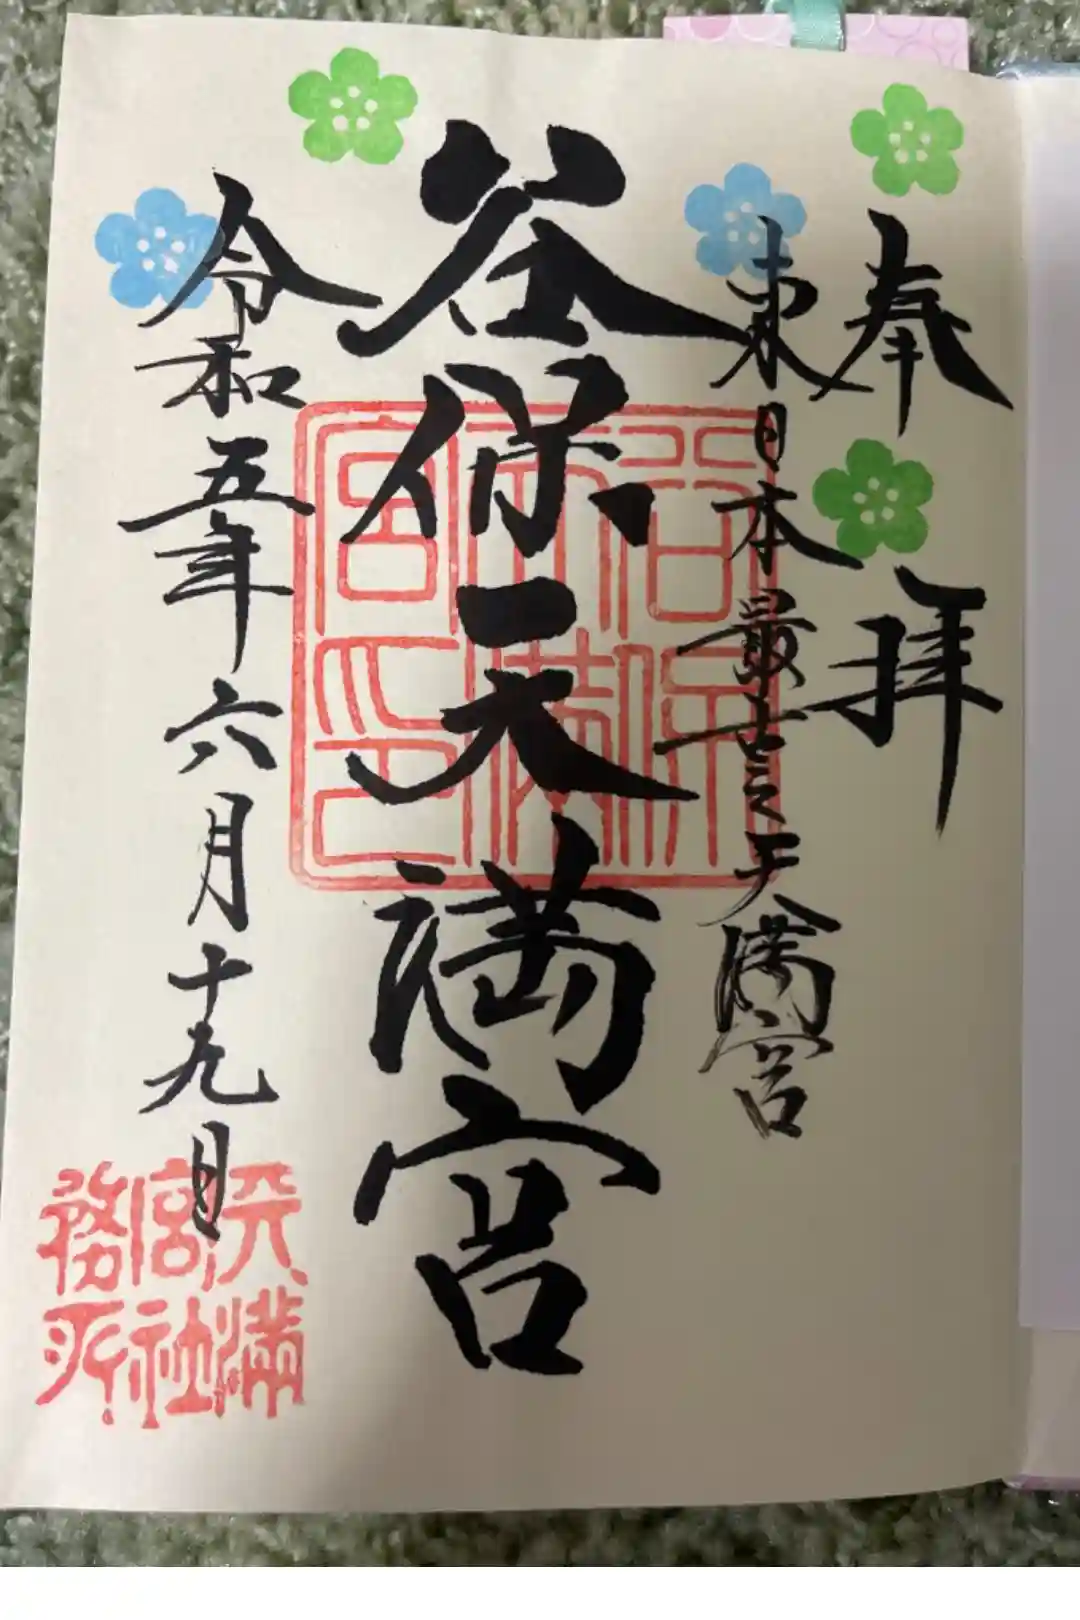 奉拝
東日本最古之天満宮
谷保天満宮
谷保天満宮印
令和五年六月十九日
天満宮社務所